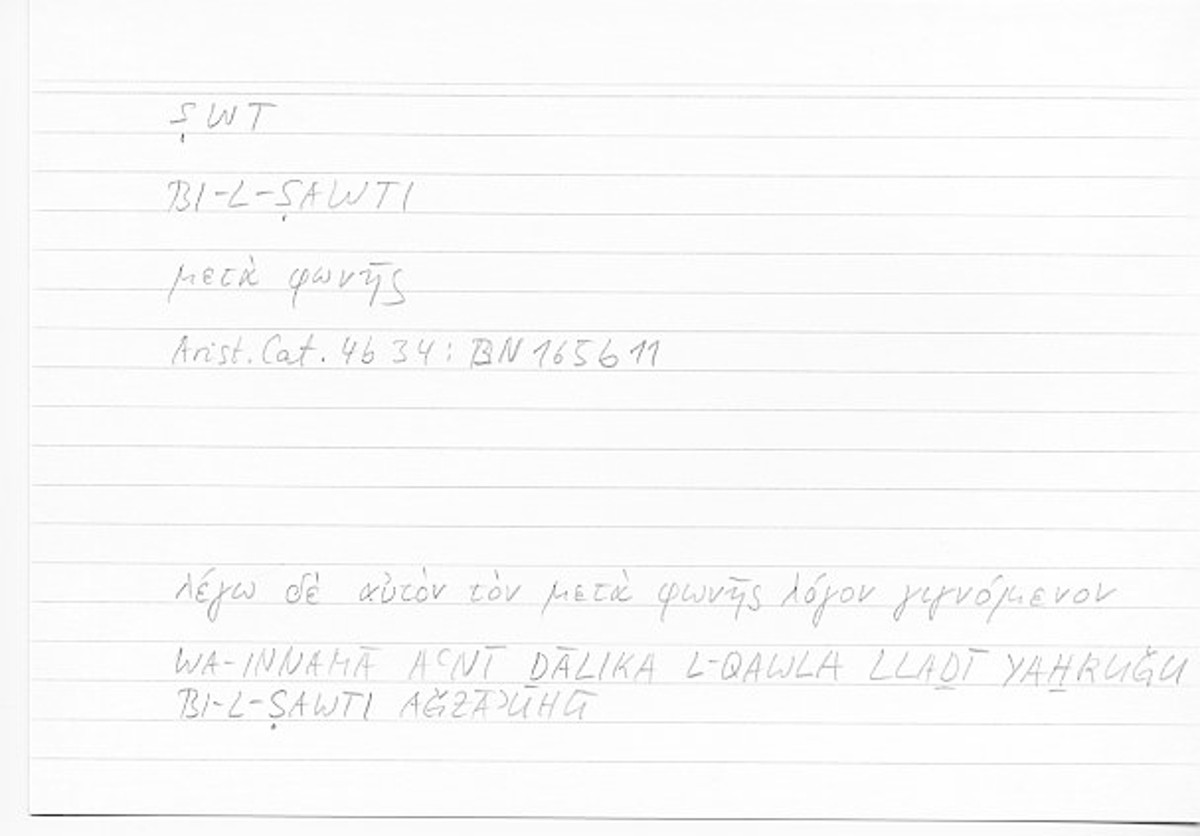 ṢWT
BI-L-ṢAWTI
μετὰ φωνῆς
Arist. Cat. 4b 34 : BN 165b 11
λέγω δὲ αὐτὸν τὸν μετὰ φωνῆς λόγον γιγνόμενον
WA-INNAMĀ AʿNĪ ḎĀLIKA L-QAWLA LLAḎĪ YAḪRUǦU
BI-L-ṢAWTI AǦZĀʾŪHŪ